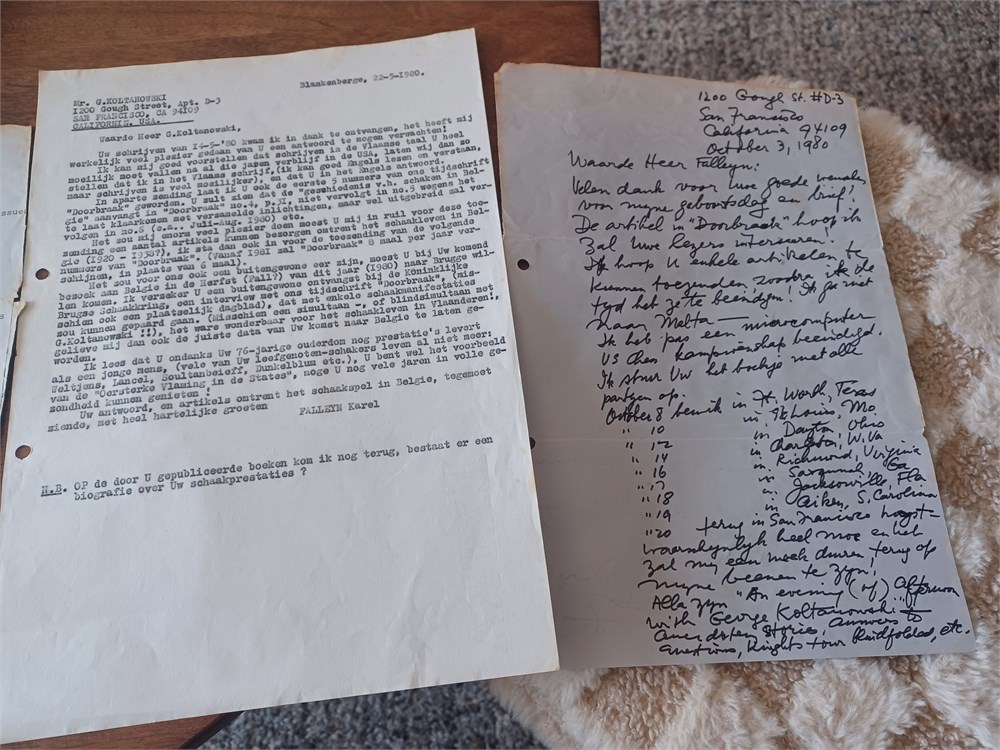 ssue
Blankenberge, 22-5-1980.
Mr. G.KOLTANOWSKI
1200 Gough Street, Apt. D-3
SAN FRANCISCO, CA 94109
CALIFORNIE. USA.
Waarde Heer G.Koltanowski,
Uw schrijven van 14-5-'80 kwam ik in dank te ontvangen, het heeft mij
werkelijk veel plezier gedaan van U een antwoord te mogen verwachten!
Ik kan mij goed voorstellen dat schrijven in de Vlaamse taal U heel
moeilijk moet vallen na al die jaren verblijf in de USA, laten wij dan zo
stellen dat ik in het Vlaams schrijf, (ik kan goed Engels lesen en verstaan,
maar schrijven is veel moeilijker), en dat U in het Engels antwoord.
In aparte sending laat ik U ook de eerste 5 nummers van ons tijdschrift
"Doorbraak" geworden. U zult zien dat de "geschiedenis v.h. schaken in Bel-
gie" aanvangt in "Doorbraak" no.4, p.31, niet vervolgd in no.5 wegens het
te laat klaarkomen met versamelde inlichtingen, maar wel uitgebreid zal ver-
volgen in no.6 (e.a. Juli-Aug. 1980) etc.
Het sou mij enorm veel plesier doen moest U mij in ruil voor dese toe-
sending een aantal artikels kunnen besorgen omtrent het schaakleven in Bel-
gie (1920 - 1938?), ik sta dan ook in voor de toesending van de volgende
nummers van "Doorbraak". (Vanaf 1981 sal "Doorbraak" 8 maal per jaar ver-
schijnen, in plaats van 6 maal).
Het sou voor ons ook een buitengewone eer zijn, moest U bij Uw komend
besoek aan Belgie in de Herfst (Fall?) van dit jaar (1980) naar Brugge wil-
len komen. Ik verseker U een buitengewone ontvangst bij de Koninklijke
Brugse Schaakkring, een interview met ons tijdschrift "Doorbraak", (mis-
schien ook een plaatselijk dagblad), dat met enkele schaakmanifestaties
sou kunnen gepaard gaan. (Misschien een simultaan -, of blindsimultaan met
G.Koltanowski !!). Het ware wonderbaar voor het schaakleven in Vlaanderen!,
gelieve mij dan ook de juiste data van Uw komst naar Belgie te laten ge-
worden.
Ik lees dat U ondanks Uw 76-jarige ouderdom nog prestatie's levert
als een jonge mens, (vele van Uw leefgenoten-schakers leven al niet meer:
Weltjens, Lancel, Soultanbeieff, Dunkelblum etc.), U bent wel het voorbeeld
van de "Oersterke Vlaming in de States", moge U nog vele jaren in volle ge-
zondheid kunnen genieten !
Uw antwoord, en artikels omtrent het schaakspel in Belgie, tegemoet
ziende, met heel hartelijke groeten
FALLEYN Karel
N.B. OP de door U gepubliceerde boeken kom ik nog terug, bestaat er een
biografie over Uw schaakprestaties ?
1200 Gough St. #D-3
San Francisco
California 94109
October 3, 1980
Waarde Heer Falleyn:
Velen dank voor Uwe goede wensen
voor myne geboortedag en brief!
De artikel in "Doorbraak" hoop ik
zal Uwe lezers interseren!
Ik hoop U enkele artikelen te
kunnen toezenden, zoodra ik de
tyd heb ze te beeindigen! Ik ga niet
naar Malta —
Ik heb pas een microcomputer
US Chess kampioenschap beeindigd.
Ik stuur Uw het boekje met alle
partyen op.
October 8 ben ik in Ft. Worth, Texas
" 10 in St Louis, Mo.
" 12 in Dayton, Ohio
" 14 in Charleston, W. Va
" 16 in Richmond, Virginia
" 17 in Savannah, Ga
" 18 in Jacksonville, Fla
" 19 in Aiken, S. Carolina
" 20 terug in San Francisco hoogst-
waarschynlyk heel moe en het
zal my een week duren terug op
myne beenen te zyn!
Alla zyn "An evening (of) Afternoon
with George Koltanowski"
Stories, answers to
questions, Knights tour blindfolded, etc.